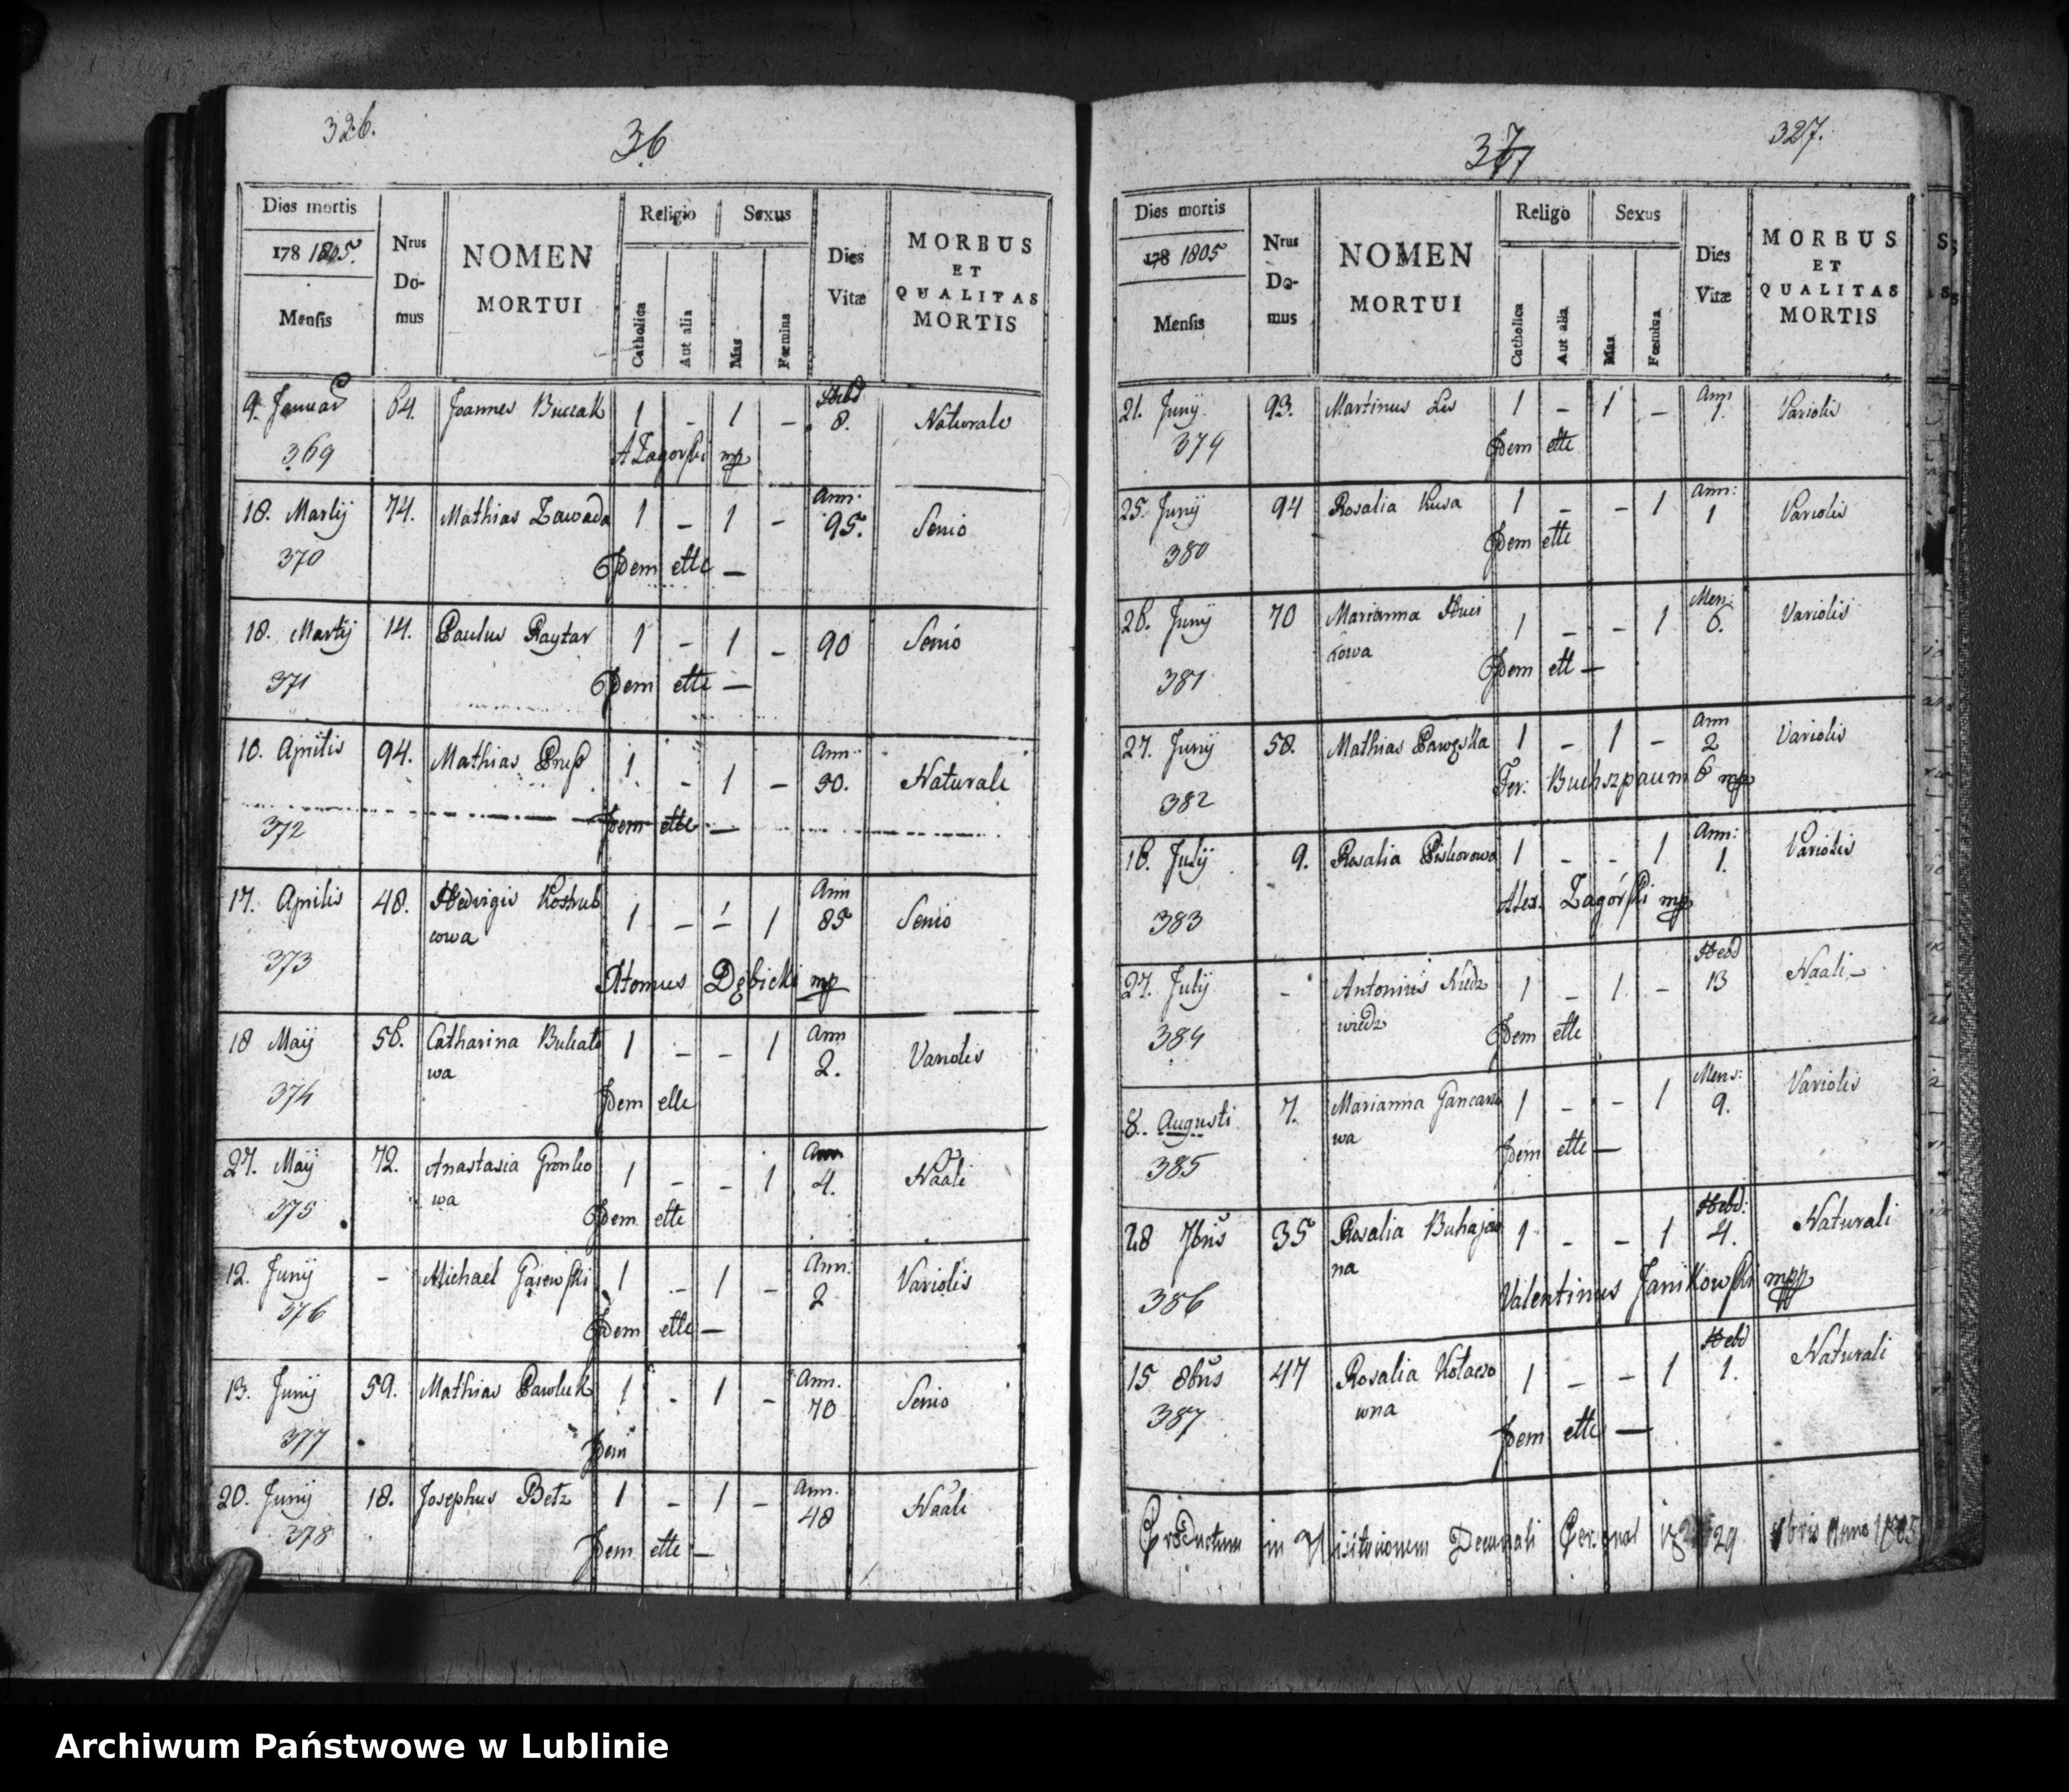 326.
36
Dies mortis
178 1805.
Mensis
Nrus
Do-
mus
NOMEN
MORTUI
Religio
Sexus
Catholica
Aut alia
Mas
Fœmina
Dies
Vitæ
MORBUS
ET
QUALITAS
MORTIS
9. Januar 64. Joannes Buczak 1 - 1 - Hebd 8. Naturale
369 AZagorski mp
18. Martij 74. Mathias Zawada 1 - 1 - Ann: 95. Senio
370 Idem ette —
18. Martij 14. Paulus Raytar 1 - 1 - 90 Senio
371 Idem ette —
10. Aprilis 94. Mathias 1 - 1 - Ann: 30. Naturale
372 Idem ette —
17. Aprilis 48. Hedvigis Kostrub 1 - - 1 Ann 85 Senio
cowa
373 Dębicki mp
18 Maij 56. Catharina Bukato 1 - - 1 Ann 2. Variolis
wa
374 Idem ette
27. Maij 72. Anastasia Gronko 1 - - 1 Ann 4. Naali
wa
375 Idem ette
12. Junij - Michael Gaiewski 1 - 1 - Ann: 2 Variolis
376 Idem ette —
13. Junij 59. Mathias Pawluk 1 - 1 - Ann. 70 Senio
377 Idem
20. Junij 18. Josephus Betz 1 - 1 - Ann. 48 Naali
378 Idem ette —
37
327.
Dies mortis
178 1805
Mensis
Nrus
Do-
mus
NOMEN
MORTUI
Religo
Sexus
Catholica
Aut alia
Mas
Fœmina
Dies
Vitæ
MORBUS
ET
QUALITAS
MORTIS
21. Junij 93. Martinus Lis 1 - 1 - Ann 1. Variolis
379 Idem ette
25. Junij 94 Rosalia 1 - - 1 Ann: 1 Variolis
380 Idem ette
26. Junij 70 Marianna 1 - - 1 Men: 6. Variolis
kowa
381 Idem ett —
27. Junij 58. Mathias Pawęska 1 - 1 - Ann 2 Variolis
382 Fer: Buchszpaum mp
16. Julij 9. Rosalia Piskorowa 1 - - 1 Ann: 1. Variolis
383 Alex. Zagórski mp
27. Julij - Antonius Niedz 1 - 1. - Hebd 13 Naali -
wiedz
384 Idem ette
8. Augusti 7. Marianna Gancarzo 1 - - 1 Mens: 9. Variolis
wa
385 Idem ette —
28 7bris 35 Rosalia Buhajow 1 - - 1 Hebd: 4. Naturali
na
386 Valentinus Janikowski mpp
15 8bris 47 Rosalia Kołaczo 1 - - 1 Hebd 1. Naturali
wna
387 Idem ette —
Productum in Visitationem Decanali Personal 29 Anno 1805
Archiwum Państwowe w Lublinie